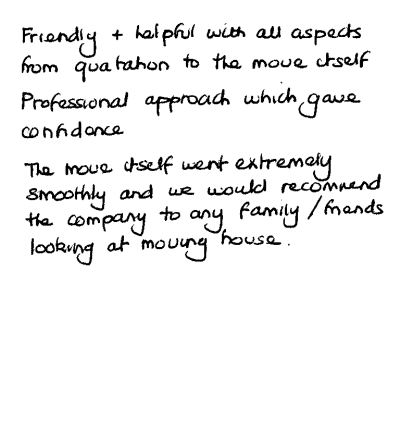 Friendly + helpful with all aspects
from quotation to the move itself
Professional approach which gave
confidence
The move itself went extremely
smoothly and we would recommend
the company to any family / friends
looking at moving house.